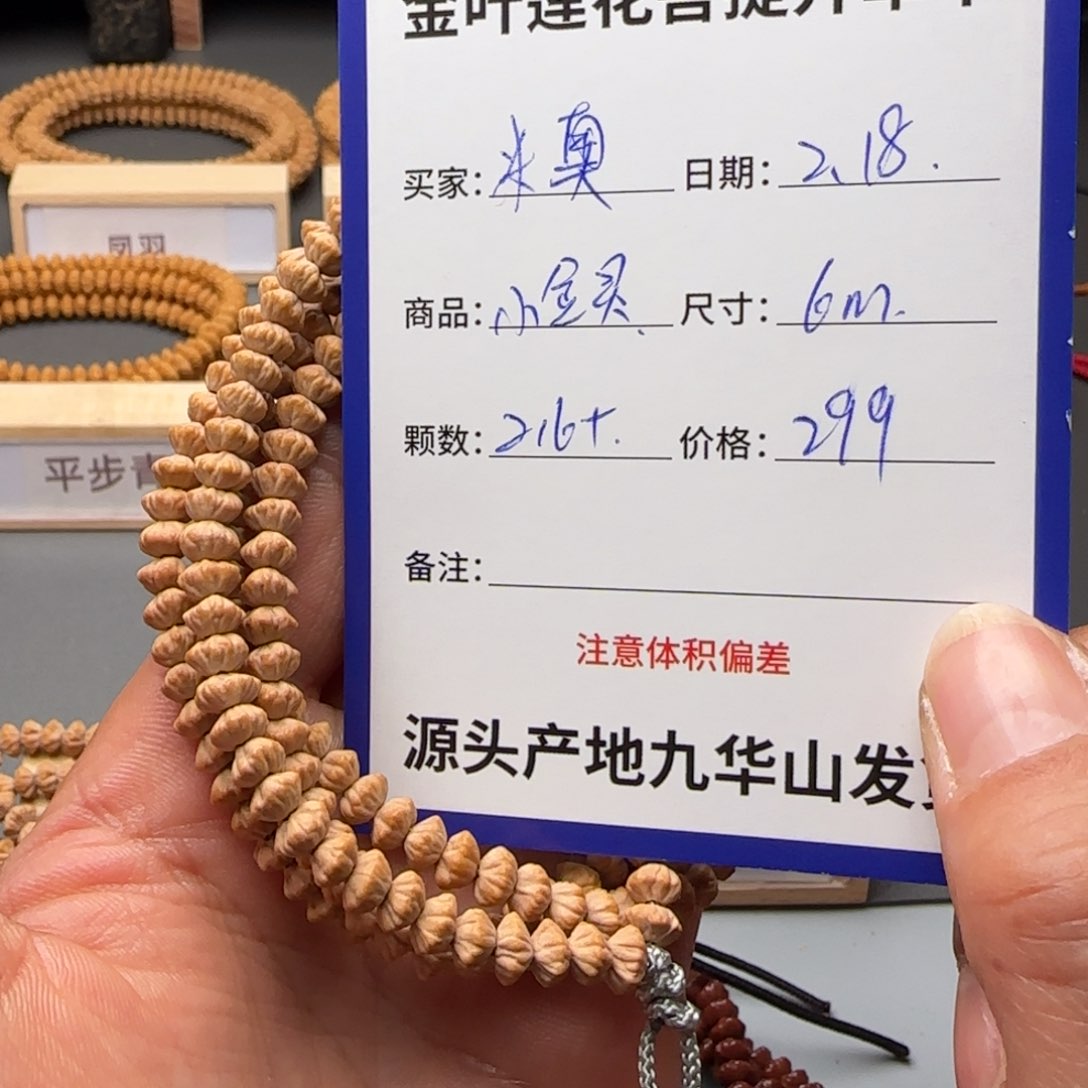 金叶莲花菩提
买家: 米奥 日期: 2.18.
商品: 小金灵. 尺寸: 6m.
颗数: 216+. 价格: 299
备注:
注意体积偏差
源头产地九华山发
凤羽
平步青